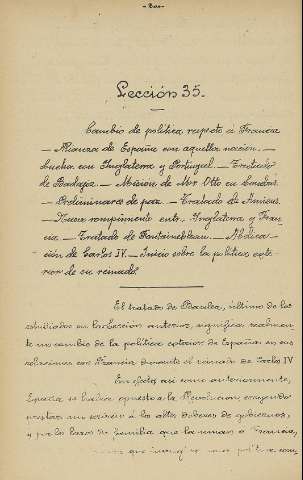 Lección 35.
Cambio de política respecto á Francia
— Alianza de España con aquella nación. —
Lucha con Inglaterra y Portugal. — Tratado
de Badajoz. — Misión de Mr. Otto en Londres.
— Preliminares de paz. — Tratado de Amiens.
— Nuevo rompimiento entre Inglaterra y Fran
cia. — Tratado de Fontainebleau. — Abdica-
ción de Carlos IV. — Juicio sobre la política exte-
rior de su reinado.
El tratado de Basilea, último de los
estudiados en la Lección anterior, significa realmen
te un cambio de la política exterior de España en sus
relaciones con Francia durante el reinado de Carlos IV
En efecto, así como anteriormente,
España se había opuesto á la Revolución, creyendo
prestar un servicio á los altos deberes de gobierno,
y por los lazos de familia que la unían á Francia,